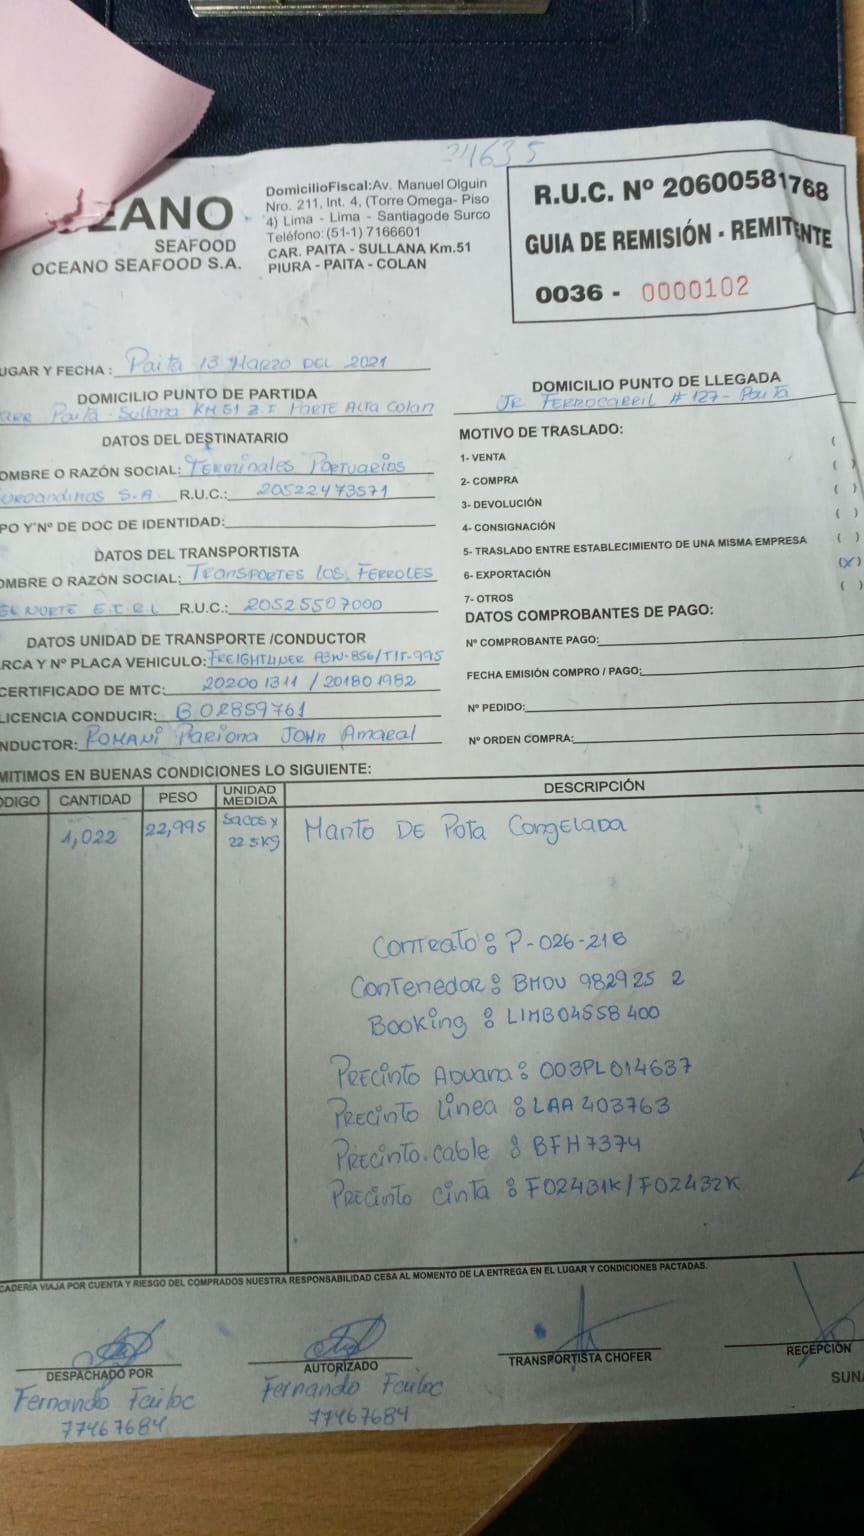 34635
EANO
SEAFOOD
OCEANO SEAFOOD S.A.
DomicilioFiscal:Av. Manuel Olguin
Nro. 211, Int. 4, (Torre Omega- Piso
4) Lima - Lima - Santiagode Surco
Teléfono: (51-1) 7166601
CAR. PAITA - SULLANA Km.51
PIURA - PAITA - COLAN
R.U.C. Nº 20600581768
GUIA DE REMISIÓN - REMITENTE
0036 - 0000102
UGAR Y FECHA : Paita 13 Marzo DEL 2021
DOMICILIO PUNTO DE PARTIDA
Paita - Sullana KM 51 Z I PARTE Alta Colan
DOMICILIO PUNTO DE LLEGADA
JR FERROCARRIL # 127 - Paita
DATOS DEL DESTINATARIO
OMBRE O RAZÓN SOCIAL: TERMINALES PORTUARIOS
uroandinos S.A R.U.C.: 20522473571
PO Y Nº DE DOC DE IDENTIDAD:
DATOS DEL TRANSPORTISTA
OMBRE O RAZÓN SOCIAL: TRANSPORTES LOS FERROLES
NORTE E.I.R.L R.U.C.: 20525507000
DATOS UNIDAD DE TRANSPORTE /CONDUCTOR
ARCA Y Nº PLACA VEHICULO: FREIGHTLINER A3W-856/TIT-995
CERTIFICADO DE MTC: 202001311 / 201801982
LICENCIA CONDUCIR: B02859761
NDUCTOR: ROMANI Pariona JOHN Amaral
MOTIVO DE TRASLADO:
1- VENTA ( )
2- COMPRA ( )
3- DEVOLUCIÓN ( )
4- CONSIGNACIÓN ( )
5- TRASLADO ENTRE ESTABLECIMIENTO DE UNA MISMA EMPRESA ( )
6- EXPORTACIÓN (X)
7- OTROS ( )
DATOS COMPROBANTES DE PAGO:
Nº COMPROBANTE PAGO:
FECHA EMISIÓN COMPRO / PAGO:
Nº PEDIDO:
Nº ORDEN COMPRA:
MITIMOS EN BUENAS CONDICIONES LO SIGUIENTE:
ÓDIGO CANTIDAD PESO UNIDAD MEDIDA DESCRIPCIÓN
1,022 22,995 Sacos x 22.5Kg Manto DE Pota CongELADA
Contrato : P-026-21B
Contenedor : BMOU 982925 2
Booking : LIMB04558400
PRECinto ADUANA : 003PL014637
PRECinto linea : LAA 403763
PRECinto cable : BFH7374
PRECinto cinta : F02431K/F02432K
CADERÍA VIAJA POR CUENTA Y RIESGO DEL COMPRADOS NUESTRA RESPONSABILIDAD CESA AL MOMENTO DE LA ENTREGA EN EL LUGAR Y CONDICIONES PACTADAS.
DESPACHADO POR
AUTORIZADO
TRANSPORTISTA CHOFER
RECEPCIÓN
Fernando Failoc
77467684
Fernando Failoc
77467684
SUNA